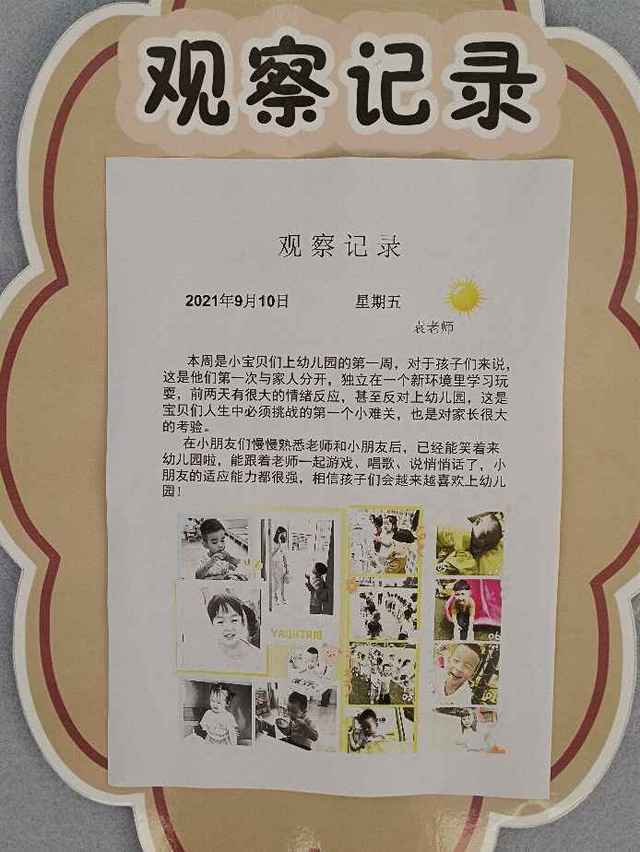 观察记录
观察记录
2021年9月10日 星期五
袁老师
本周是小宝贝们上幼儿园的第一周，对于孩子们来说，
这是他们第一次与家人分开，独立在一个新环境里学习玩
耍，前两天有很大的情绪反应，甚至反对上幼儿园，这是
宝贝们人生中必须挑战的第一个小难关，也是对家长很大
的考验。
在小朋友们慢慢熟悉老师和小朋友后，已经能笑着来
幼儿园啦，能跟着老师一起游戏、唱歌、说悄悄话了，小
朋友的适应能力都很强，相信孩子们会越来越喜欢上幼儿
园！